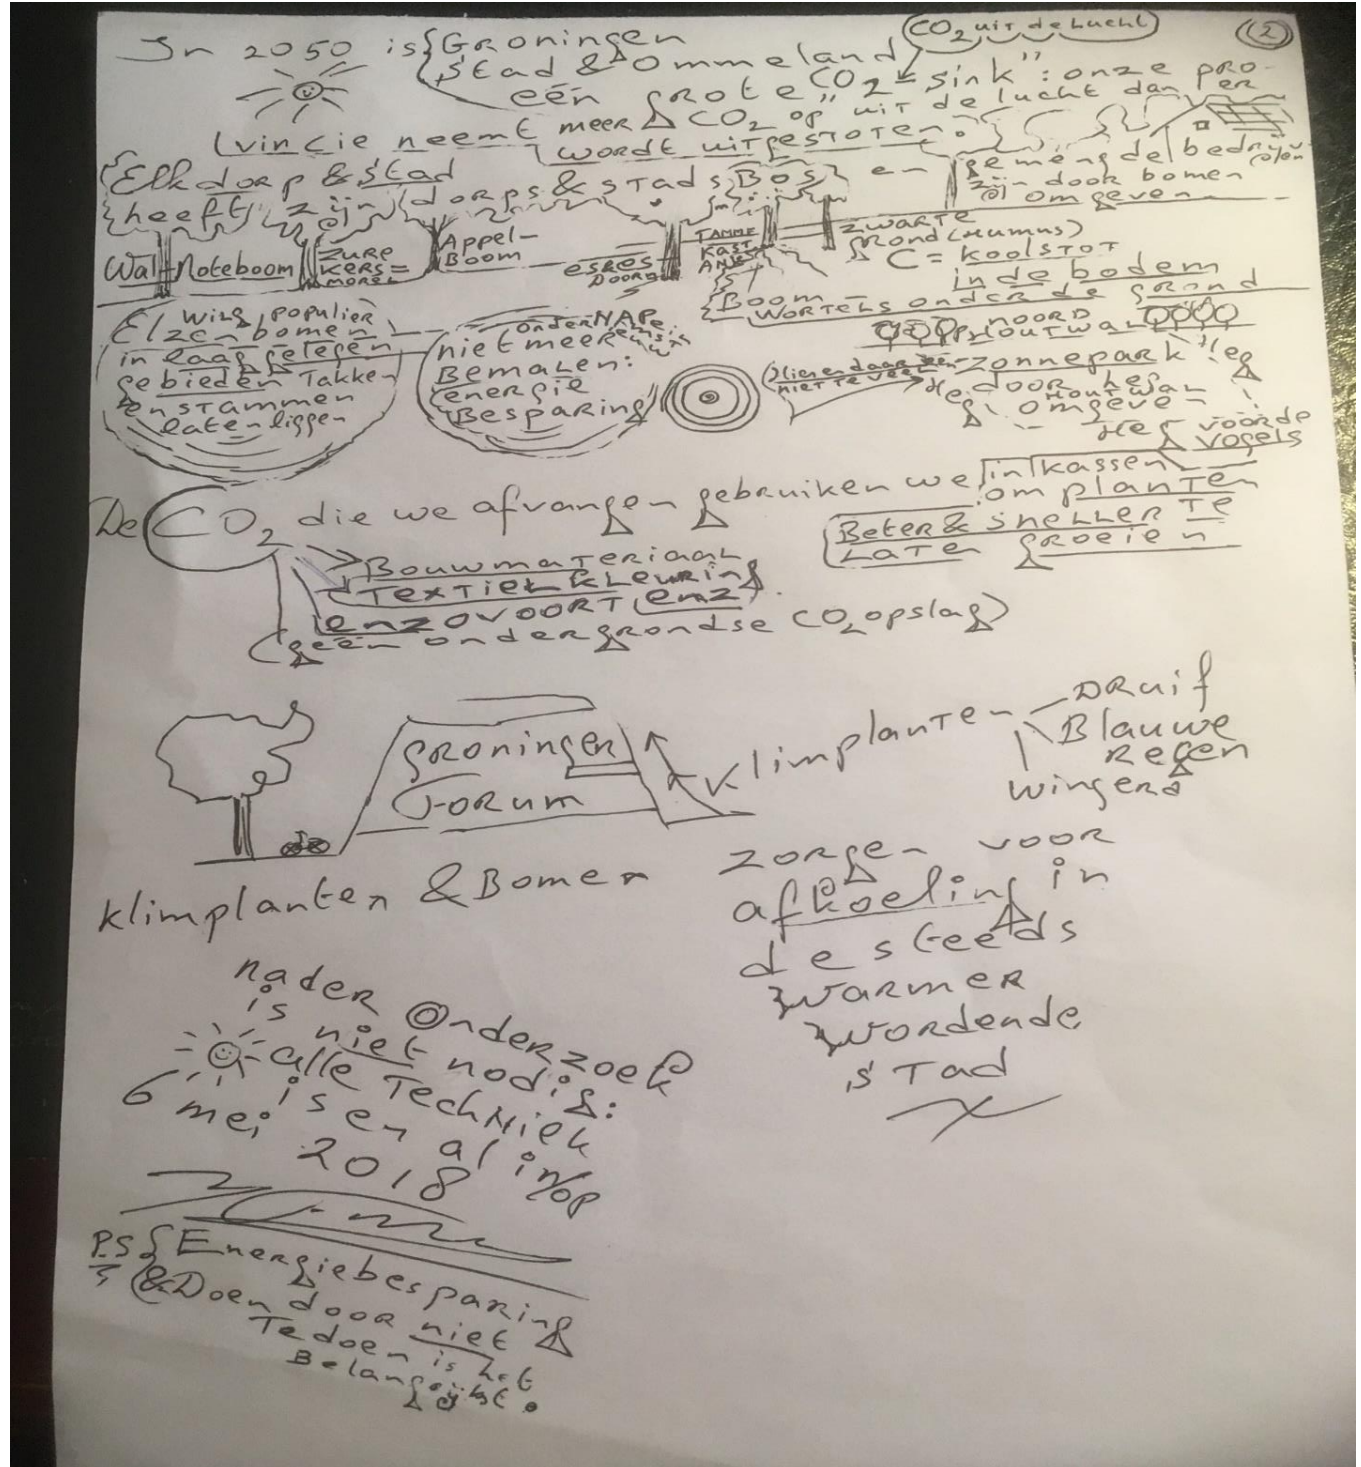 CO2 uit de lucht
(2)
In 2050 is Groningen
Stad & Ommeland
een grote CO2 "sink": onze pro-
vincie neemt meer CO2 op uit de lucht dan er
wordt uitgestoten.
Elk dorp & stad
heeft zijn dorps & stads Bos en gemengde bedrij
zijn door bomen
omgeven
Wal-Noteboom
zure
kers =
morel
Appel-
Boom
esdes
Doorn
TAMME
KAST
ANJE
zwarte
grond (Humus)
C = koolstof
in de bodem
Boom
wortels onder de grond
wilg populier
Elzenbomen
in laag gelegen
gebieden Takken
en stammen
laten liggen
onder NAP
niet meer
Bemalen:
energie
Besparing
NOORD
Houtwal
zonnepark
door heg
Houtwal
omgeven
Heg
Heg
Heg voor de
vogels
De CO2 die we afvangen gebruiken we in kassen
om planten
Beter & sneller te
laten groeien
Bouwmateriaal
Textiel kleuring
enzovoort enz.
(geen ondergrondse CO2 opslag)
groninger
Forum
Klimplanten
Druif
Blauwe
Regen
wingerd
klimplanten & Bomen
zorgen voor
afkoeling in
de steeds
warmer
wordende
stad
nader Onderzoek
is niet nodig:
alle Techniek
is er al in/op
6 mei 2018
P.S. Energiebesparing
& Doen door niet
Te doen is het
Belangrijkst.